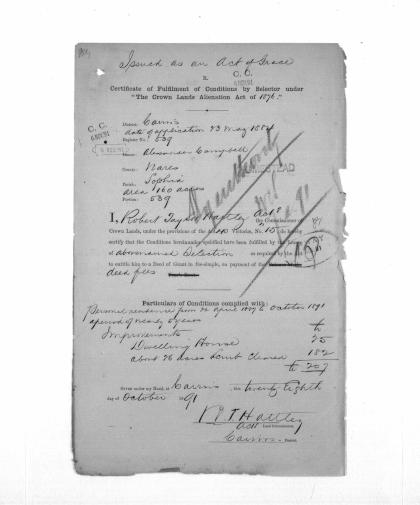 Issued as an Act of Grace
R.
C. O.
Certificate of Fulfilment of Conditions by Selector under
"The Crown Lands Alienation Act of 1876."
C. C.
District, Cairns
date of application 23 May 1884
Register No. 539
Name, Alexander Campbell
County, Nares
Parish, Sophia
area 160 acres
Portion, 539
I, Robert Taylor Hartley Asst
Crown Lands, under the provisions of the Act 40 Victoria, No. 15 do hereby
certify that the Conditions hereinunder specified have been fulfilled by the
of abovenamed Selection as required by the Act
to entitle him to a Deed of Grant in fee-simple, on payment of the
deed fees
Particulars of Conditions complied with:
Personal residence from April to October 1891
a period of nearly years
Improvements
Dwelling House 25
about 26 acres Scrub Cleared 182
£ 207
Given under my Hand, at Cairns, this twenty eighth
day of October 1891
R T Hartley
Asst Land Commissioner,
Cairns District.